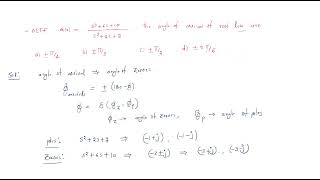 G(s) = s²+6s+10 / s²+2s+2 the angle of arrival of root loci are
a) ±π/2 b) ±π/3 c) ±π/4 d) ±5π/6
Sol: angle of arrival ⇒ angle of zeros
Φ arrivals = ± (180-Φ)
Φ = Σ(Φz-Φp)
Φz → angle of zeros, Φp → angle of ples
ples: s²+2s+2 ⇒ (-1+j), (-1-j)
zeros: s²+6s+10 ⇒ (-3+j), (-3-j)